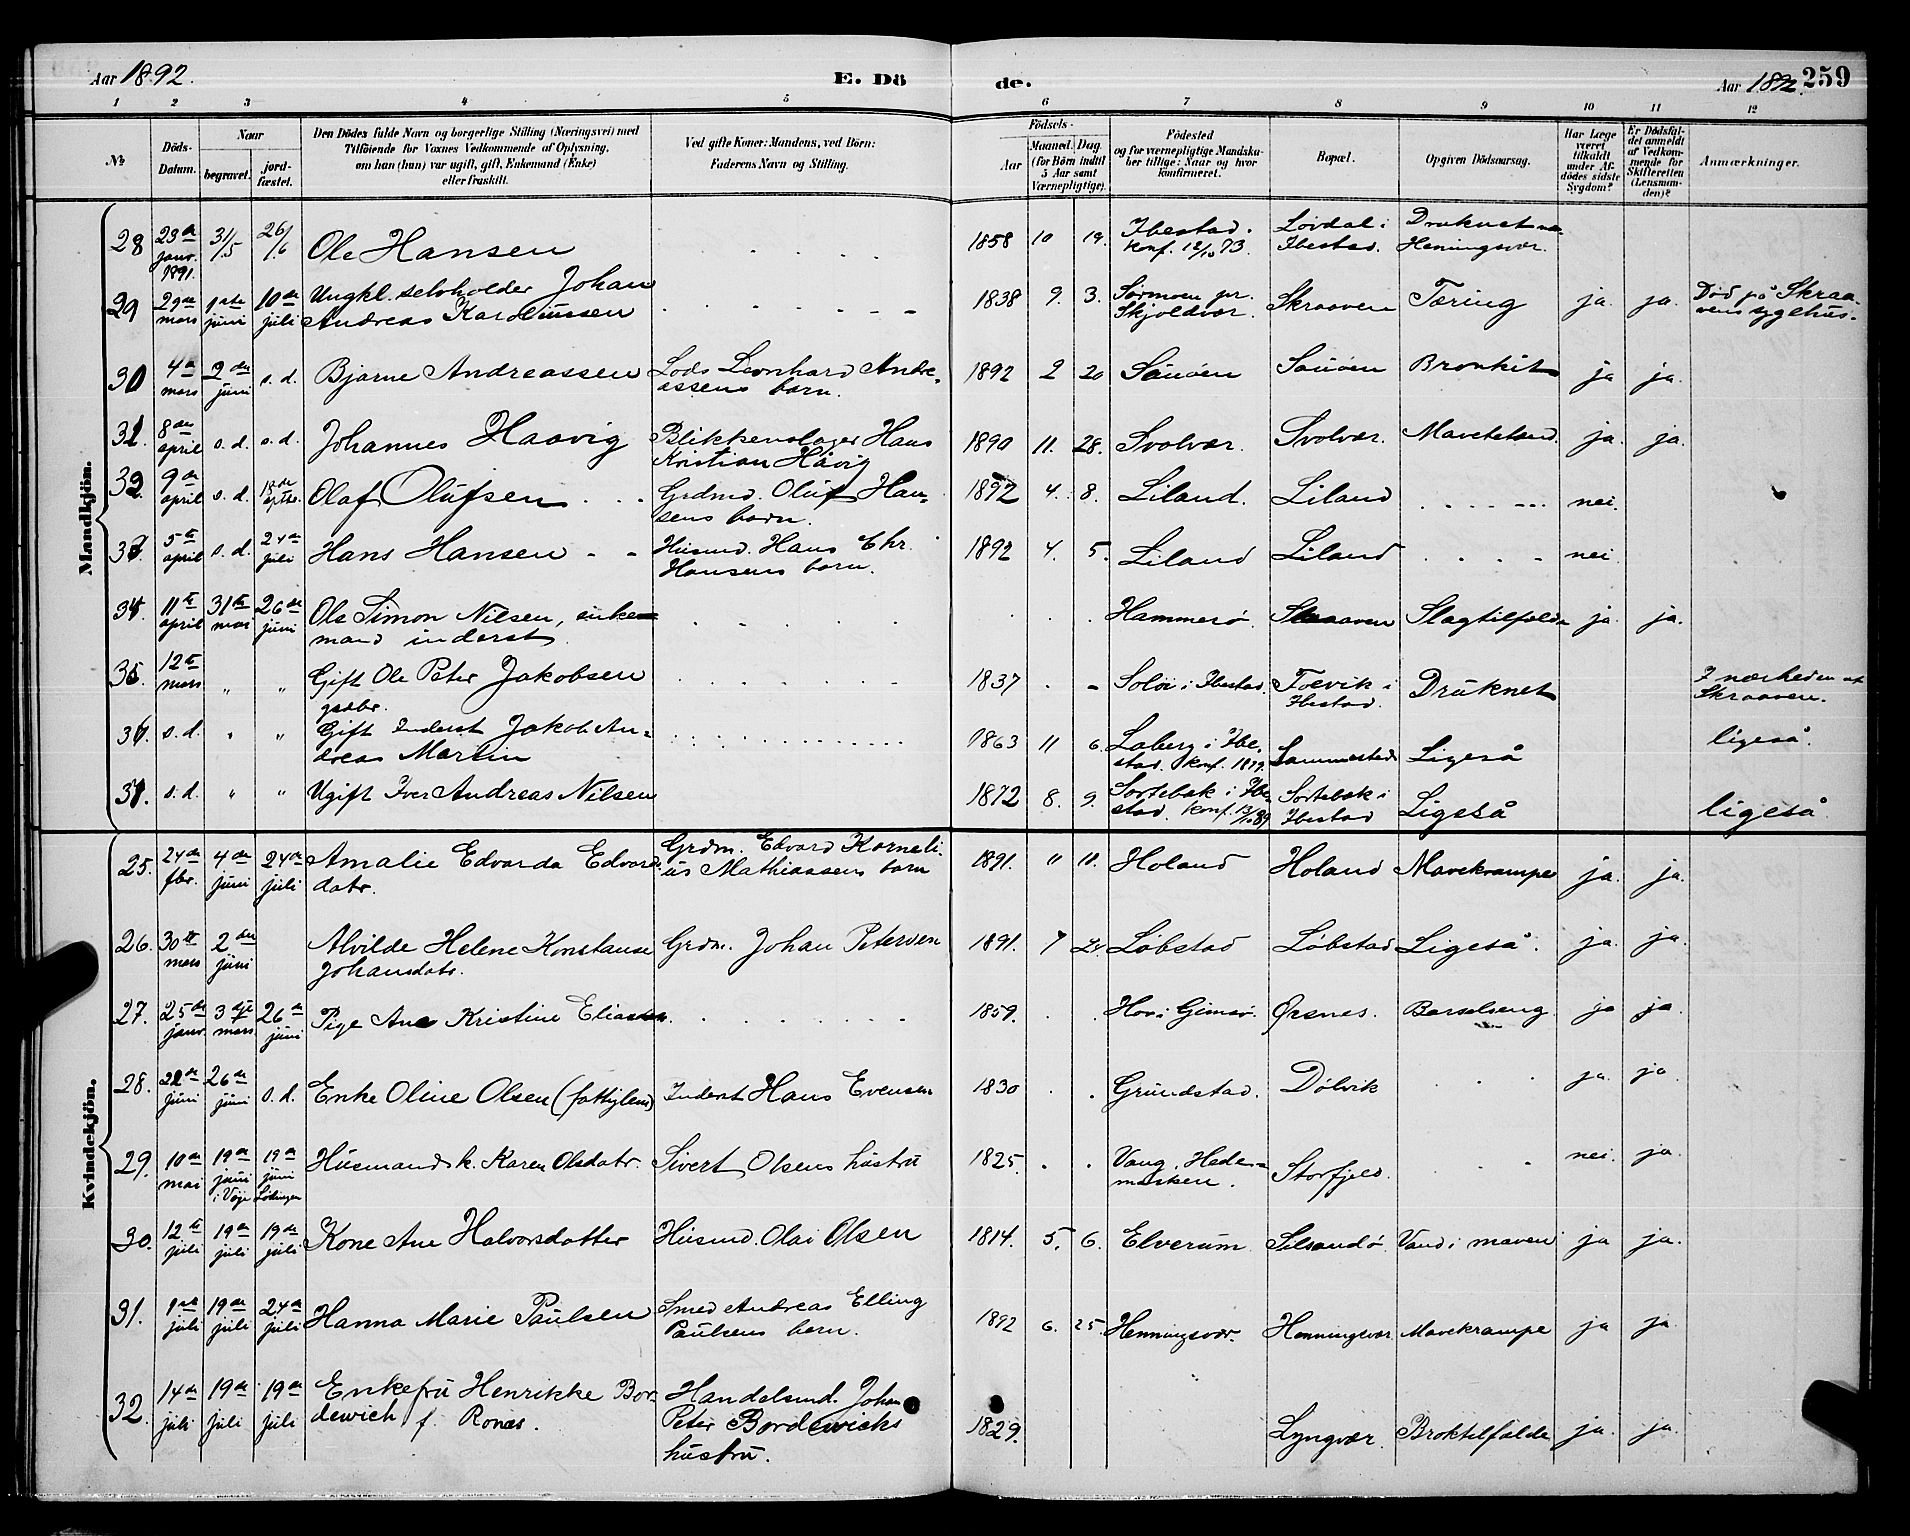 Aar 1892. E. Dö de. Aar 1892. 259
1 2 3 4 5 6 7 8 9 10 11 12
No Döds-Datum. Naar begravet. jord-fæstet. Den Dödes fulde Navn og borgerlige Stilling (Næringsvei) med Tilföiende for Voxnes Vedkommende af Oplysning, om han (hun) var ugift, gift, Enkemand (Enke) eller fraskilt. Ved gifte Koner: Mandens, ved Börn: Faderens Navn og Stilling. Födsels- Aar Maaned. Dag. (for Börn indtil 5 Aar samt Værnepligtige). Födested og for værnepligtige Mandska-ber tillige: Naar og hvor konfirmeret. Bopæl. Opgiven Dödsaarsag. Har Læge været tilkaldt under Af-dödes sidste Sygdom? Er Dödsfal-det anmeldt af Vedkom-mende for Skifteretten (Lensman-den)? Anmærkninger.
Mandkjön.
28 23de janr. 1891. 31/5 26/6 Ole Hansen 1858 10 19. Ibestad. konf. 12/10 73. Lövdal i Ibestad. Druknet Henningsvær.
29 29de mars 1ste juni 10de juli Ungkl. selvholder Johan Andreas Karoliussen 1838 9. 3. Sörmoen pr. Skjoldvær. Skraaven Tæring ja. ja. Död på Skraa-vens sygehus.
30 4de mars 2den juni s. d. Bjarne Andreassen Lods Leonhard Andre-assens barn. 1892 2 20 Sauöen Sauöen Bronkit ja ja.
31. 8de april s. d. s. d. Johannes Haavig Blikkenslager Hans Kristian Håvig 1890 11. 28. Svolvær. Svolvær. ja. ja.
32. 9de april s. d. 18de septbr. Olaf Olufsen Grdmd. Oluf Han-sens barn. 1892 4. 8. Liland. Liland nei.
33 5te april s. d. 24de juli Hans Hansen Husmd. Hans Chr. Hansens barn. 1892 4. 5. Liland Liland nei
34 11te april 31te mai 26de juni Ole Simon Nilsen, enke-mand inderst. Hammerö. Skraaven Slagtilfælde ja. ja.
35. 12te mars " " Gift Ole Peter Jakobsen gaabr. 1837 Solöi i Ibestad. Toevik i Ibestad. Druknet I nærheden af Skraaven.
36. s. d. " " Gift Inderst Jakob An-dreas Martin 1863 11 6. Laberg i Ibe-stad. konf. 1879 Ligeså ligeså.
37. s. d. " " Ugift Iver Andreas Nilsen 1872 8. 9. Sortebak i Ibe-stad. konf. 13/10 89 Sortebak i Ibestad Ligeså ligeså
Kvindekjön.
25. 24de fbr. 4de juni 24de juli Amalie Edvarda Edvards-datr. Grdm. Edvard Korneli-us Mathiassens barn 1891. " 11. Holand Holand Mavekrampe ja. ja.
26. 30te mars 2den juni Alvilde Helene Konstanse Johansdatr. Grdm. Johan Petersen 1891. 7 Löbstad Löbstad Ligeså. ja. ja.
27. 25de janr. 3dje mars 26de juni Pige Ane Kristine Eliasdatr. 1859. Hov i Gimsö. Örsnes. Barselseng. ja ja.
28. 22de juni 26de juni s. d. Enke Oline Olsen (fattiglem) Inderst Hans Evensen 1830 Grundstad. Dölvik ja. ja.
29. 10de mai 19de juni i Våje 19de juni Lödingen Husmands k. Karen Olsdatr. Sivert Olsens hustru 1825. Vang, Hede-marken. Storfjeld. nei. ja.
30. 12te juli 19de juli 19de juli Kone Ane Halvorsdatter Husmd. Olai Olsen 1814. 5. 6. Elverum Silsandö. Vand i maven ja ja.
31. 1ste juli 19de juli 24de juli Hanna Marie Paulsen Smed Andreas Elling Paulsens barn. 1892 6. 25. Henningsvær. Henningsvær Mavekrampe ja ja.
32. 14de juli 19de juli 19de juli Enkefru Henrikke Bor-dewich f. Rones. Handelsmd. Johan Peter Bordewicks hustru. 1829. Lyngvær. Broktilfælde ja. ja.